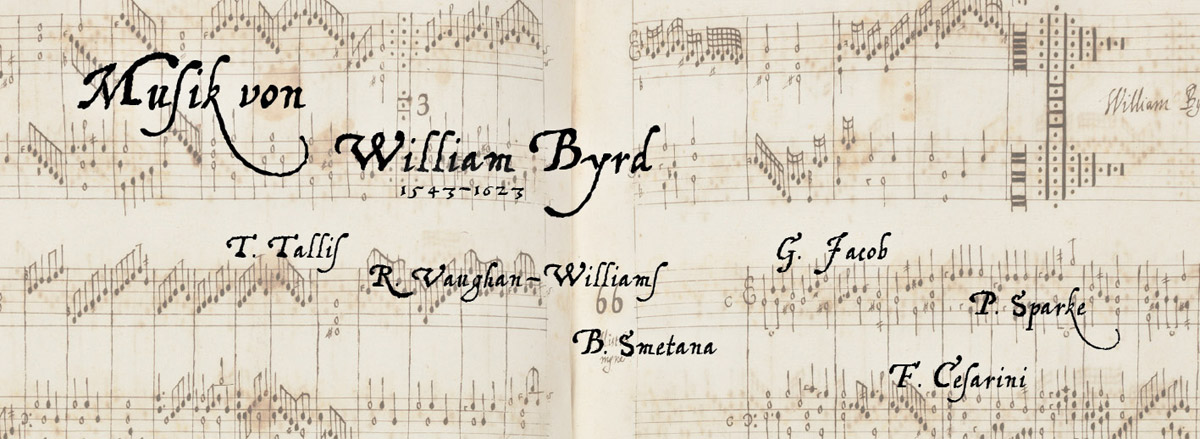 Muſik von
William Byrd
1543-1623
T. Talliſ
R. Vaughan-Williamſ
B. Smetana
G. Jacob
P. Sparke
F. Ceſarini
3
66
William